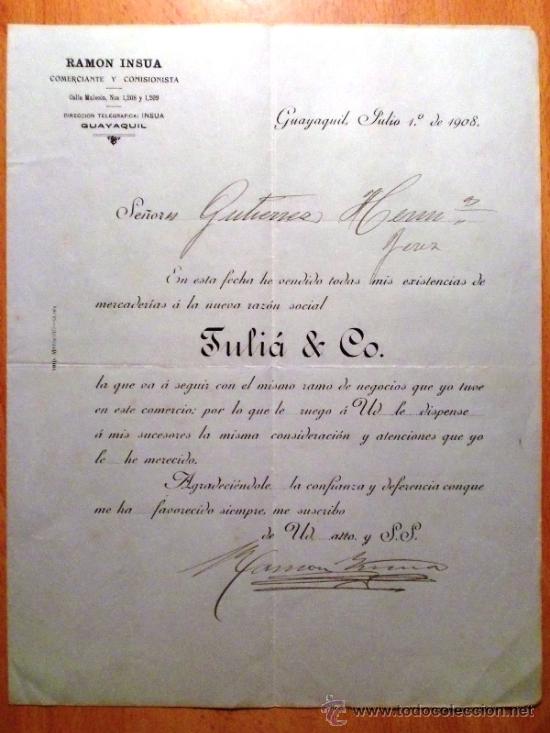 RAMON INSUA
COMERCIANTE Y COMISIONISTA
Calle Malecón, Nos 1,208 y 1,209
DIRECCION TELEGRAFICA: INSUA
GUAYAQUIL
Guayaquil, Julio 1.º de 1908.
Señores Gutierres Hermnos
Jerez
En esta fecha he vendido todas mis existencias de
mercaderías á la nueva razón social
Juliá & Co.
la que va á seguir con el mismo ramo de negocios que yo tuve
en este comercio; por lo que le ruego á Ud le dispense
á mis sucesores la misma consideración y atenciones que yo
le he merecido.
Agradeciéndole la confianza y deferencia conque
me ha favorecido siempre, me suscribo
de Ud atto. y S.S.
Ramon Insua
www.todocoleccion.net